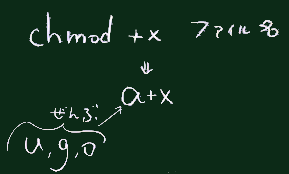 chmod +x ファイル名
⇓
a+x
u, g, o